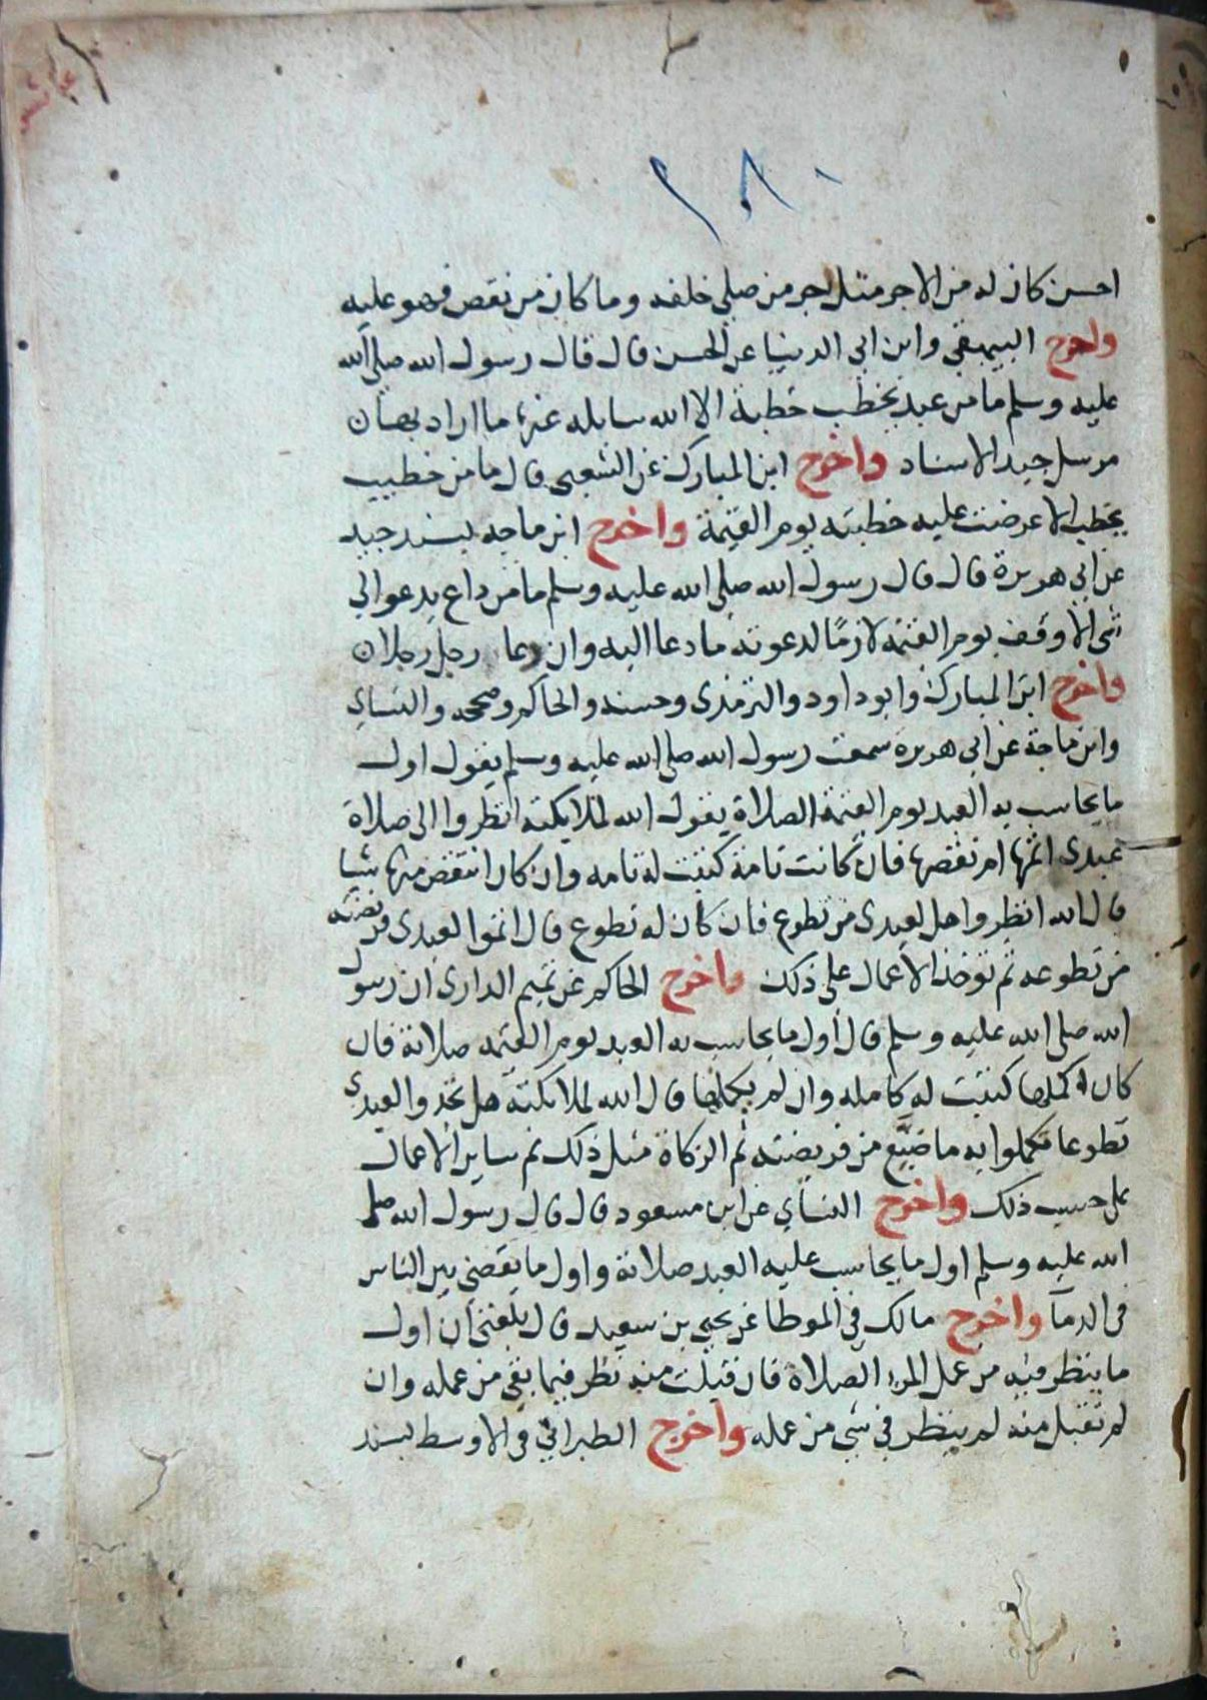 احسن كان له من الاجر مثل اجر من صلى خلفه وما كان من نقص فهو عليه
واخرج البيهقي وابن ابي الدنيا عن الحسن قال قال رسول الله صلى الله
عليه وسلم ما من عبد يخطب خطبة الا الله سايله عنها ما اراد بها
مرسل جيد الاسناد واخرج ابن المبارك عن الشعبي قال ما من خطيب
يخطب الا عرضت عليه خطبته يوم القيمة واخرج ابن ماجه بسند جيد
عن ابي هريرة قال قال رسول الله صلى الله عليه وسلم ما من داع يدعو الى
شي الا وقف يوم القيمة لازمًا لدعوته ما دعا اليه وان دعا رجل رجلان
واخرج ابن المبارك وابو داود والترمذي وحسنه والحاكم وصححه والنساي
وابن ماجة عن ابي هريرة سمعت رسول الله صلى الله عليه وسلم يقول اول
ما يحاسب به العبد يوم القيمة الصلاة يقول الله لملايكته انظروا الى صلاة
عبدي اتمها ام نقصها فان كانت تامة كتبت له تامه وان كان انتقص منها شيا
قال الله انظروا هل لعبدي من تطوع فان كان له تطوع قال اتموا لعبدي فريضته
من تطوعه ثم توخذ الاعمال على ذلك واخرج الحاكم عن تميم الداري ان رسول
الله صلى الله عليه وسلم قال اول ما يحاسب به العبد يوم القيمه صلاته فان
كان اكملها كتبت له كامله وان لم يكملها قال الله لملايكته هل تجدوا لعبدي
تطوعا تكملوا به ما ضيَّع من فريضته ثم الزكاة مثل ذلك ثم ساير الاعمال
على حسب ذلك واخرج النساي عن ابن مسعود قال قال رسول الله صلى
الله عليه وسلم اول ما يحاسب عليه العبد صلاته واول ما يقضى بين الناس
في الدمآ واخرج مالك في الموطا عن يحيى بن سعيد قال بلغني ان اول
ما ينظر فيه من عمل المرء الصلاة فان قبلت منه نظر فيما بقي من عمله وان
لم تقبل منه لم ينظر في شي من عمله واخرج الطبراني في الاوسط بسند